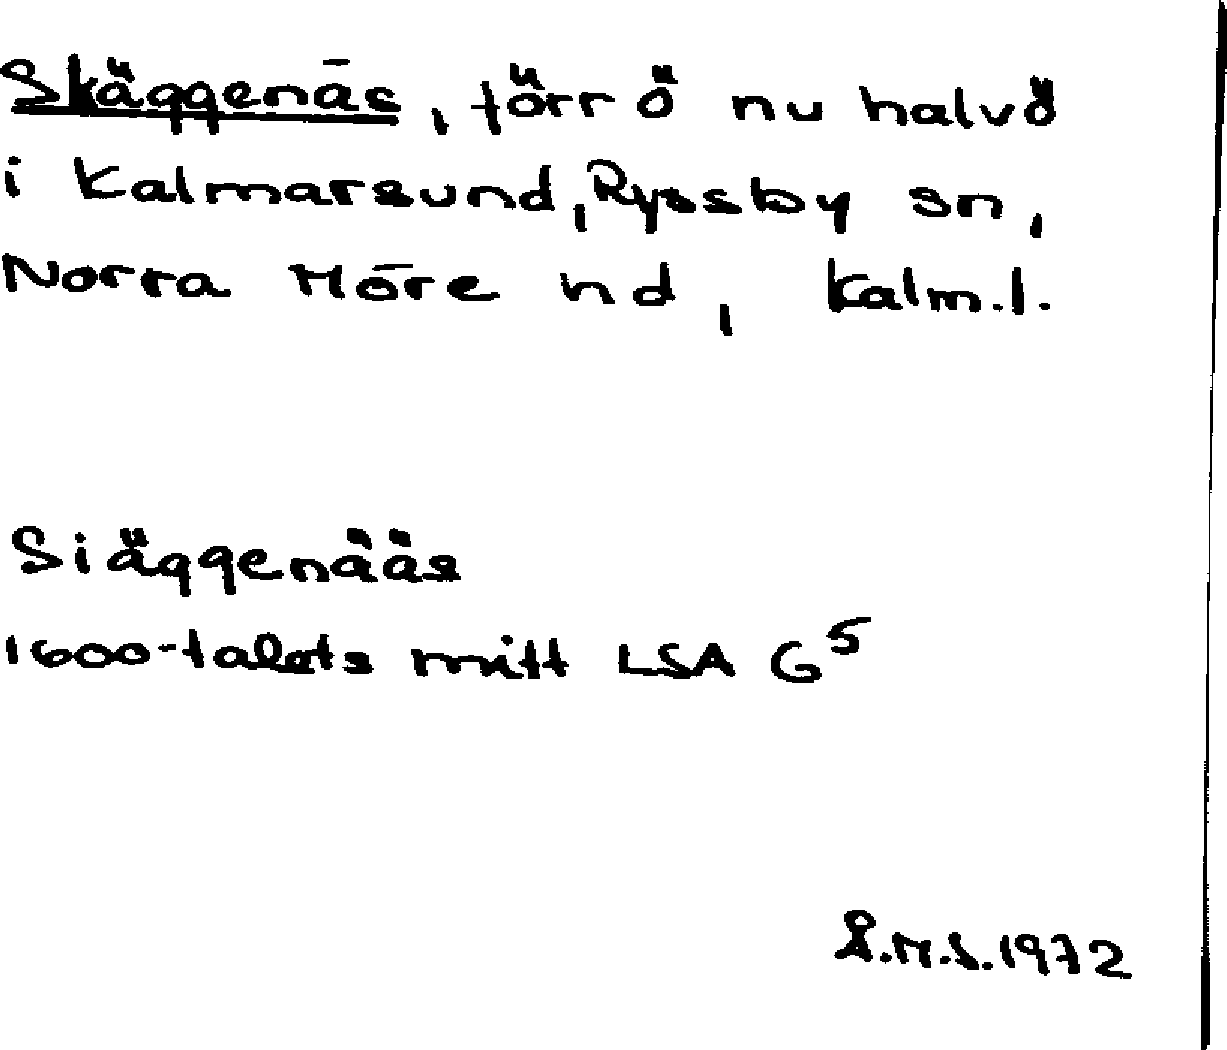 Skäggenäs, förr ö nu halvö
i Kalmarsund, Ryssby sn,
Norra Möre hd, Kalm.l.
Siäggenääs
1600-talets mitt LSA G⁵
Å.M.S. 1972